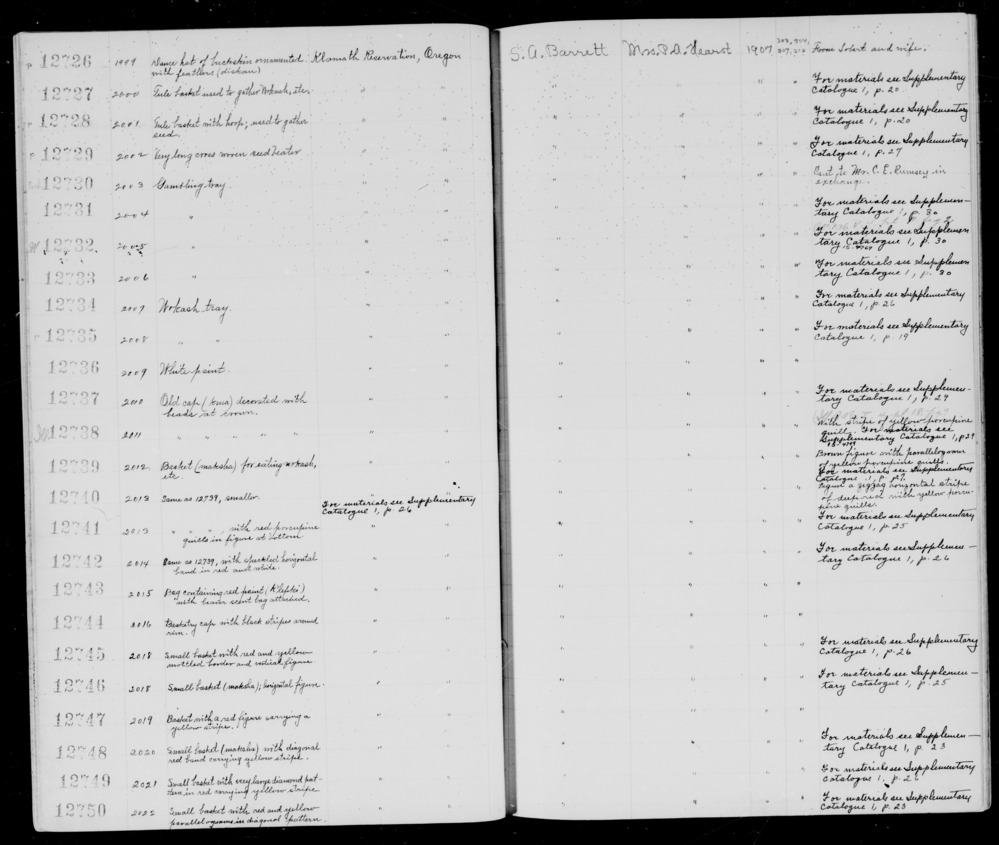 12726 1999 Dance hat of buckskin ornamented Klamath Reservation, Oregon S. A. Barrett Mrs. P. A. Hearst 1907
with feathers From Sobert and wife.
12727 2000 Tule basket used to gather Wokash, etc. " " " " " For materials see Supplementary
Catalogue 1, p. 20
12728 2001 Tule basket with hoop; used to gather " " " " " For materials see Supplementary
seed. Catalogue 1, p. 20
12729 2002 Very long cross woven seed beater " " " " " For materials see Supplementary
Catalogue 1, p. 27
12730 2003 Gambling tray. " " " " " Sent to Mr. C. E. Rumsey in
exchange.
12731 2004 " " " " " " For materials see Supplemen-
tary Catalogue 1, p. 30
12732 2005 " " " " " " For materials see Supplemen
tary Catalogue 1, p. 30
12733 2006 " " " " " " For materials see Supplemen
tary Catalogue 1, p. 30
12734 2007 Wokash tray. " " " " " For materials see Supplementary
Catalogue 1, p. 26
12735 2008 " " " " " " " For materials see Supplementary
Catalogue 1, p. 19
12736 2009 White paint. " " " " "
12737 2010 Old cap (kma) decorated with " " " " " For materials see Supplemen-
beads at crown. tary Catalogue 1, p. 29
12738 2011 " " " " " " " " " " With stripe of yellow porcupine
quills. For materials see
Supplementary Catalogue 1, p. 29
12739 2012 Basket (maksha) for eating wokash, " " " " " Brown figure with parallelograms
etc. of yellow porcupine quills.
For materials see Supplementary
Catalogue 1, p. 27.
12740 2013 Same as 12739, smaller. For materials see Supplementary
Catalogue 1, p. 26
Figure a zigzag horizontal stripe
of deep red with yellow porcu-
pine quills.
12741 2013 " " , with red porcupine " " " " " For materials see Supplementary
quills in figure at bottom Catalogue 1, p. 25
12742 2014 Same as 12739, with speckled horizontal " " " " " For materials see Supplemen-
band in red and white. tary Catalogue 1, p. 26
12743 2015 Bag containing red paint (Klepki) " " " " "
with beaver scent bag attached.
12744 2016 Basketry cap with black stripes around " " " " "
rim.
12745 2018 Small basket with red and yellow " " " " " For materials see Supplementary
mottled border and vertical figure Catalogue 1, p. 26
12746 2018 Small basket (maksha); horizontal figure. " " " " " For materials see Supplemen-
tary Catalogue 1, p. 25
12747 2019 Basket with a red figure carrying a " " " " "
yellow stripe.
12748 2020 Small basket (maksha) with diagonal " " " " " For materials see Supplemen-
red band carrying yellow stripe. tary Catalogue 1, p. 23
12749 2021 Small basket with very large diamond pat- " " " " " For materials see Supplementary
tern in red carrying yellow stripe Catalogue 1, p. 26
12750 2022 Small basket with red and yellow " " " " " For materials see Supplementary
parallelograms in diagonal pattern. Catalogue 1, p. 23